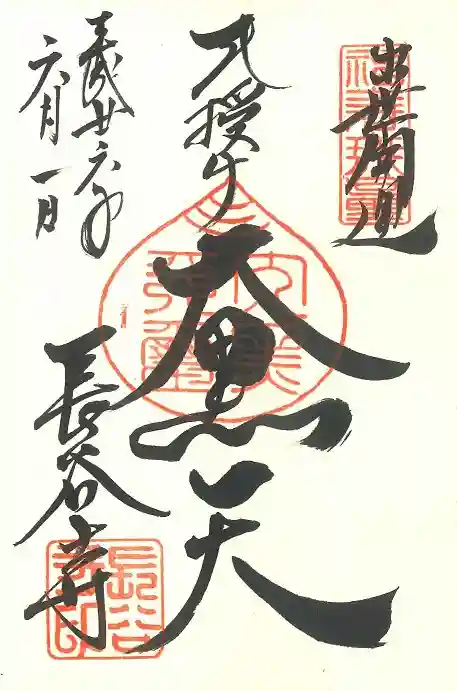 出世開運
授け
大黒天
平成廿六年
六月一日
長谷寺
長谷寺印